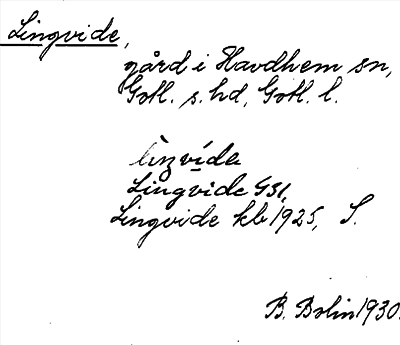 Lingvide,
gård i Havdhem sn,
Gotl. s. hd, Gotl. l.
lìŋvída
Lingvide GSI,
Lingvide kb 1925, S.
B. Bolin 1930.